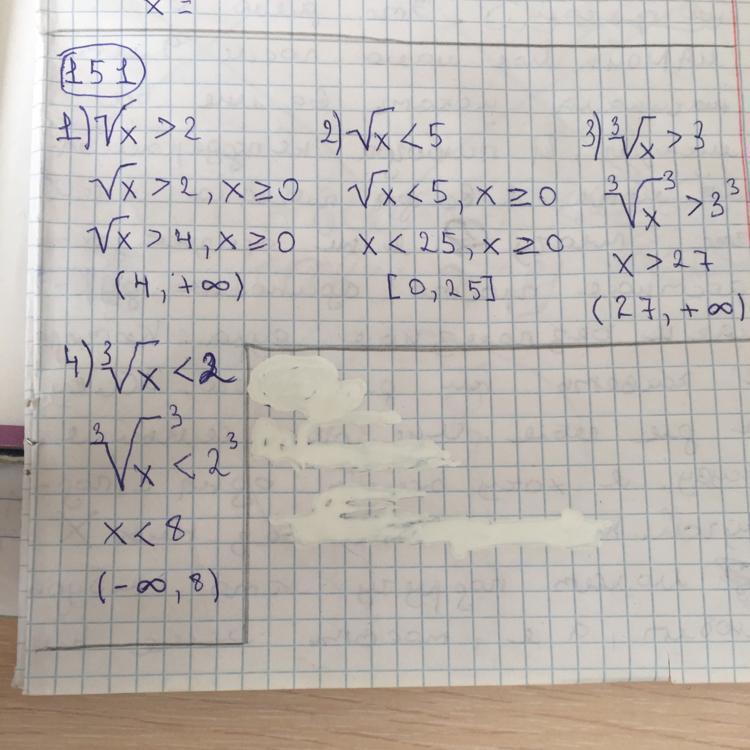 x =
151
1) √x > 2
√x > 2, x ≥ 0
√x > 4, x ≥ 0
(4, +∞)
2) √x < 5
√x < 5, x ≥ 0
x < 25, x ≥ 0
[0, 25]
3) ∛x > 3
∛x³ > 3³
x > 27
(27, +∞)
4) ∛x < 2
∛x³ < 2³
x < 8
(-∞, 8)